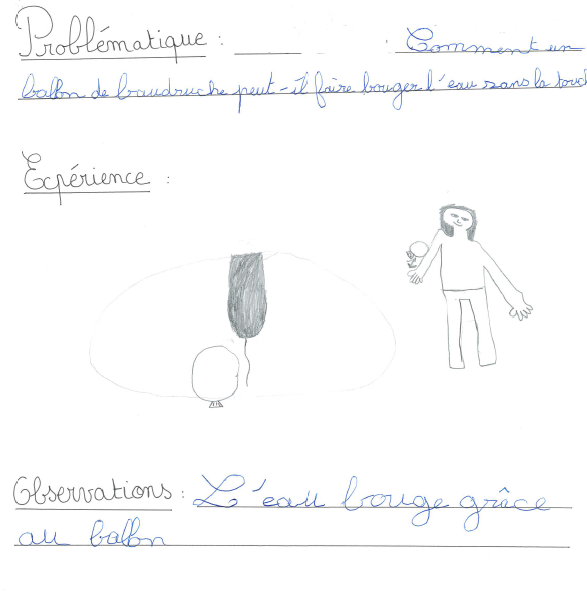 Problématique : Comment un
ballon de baudruche peut-il faire bouger l'eau sans la touch
Expérience :
Observations : L'eau bouge grâce
au ballon